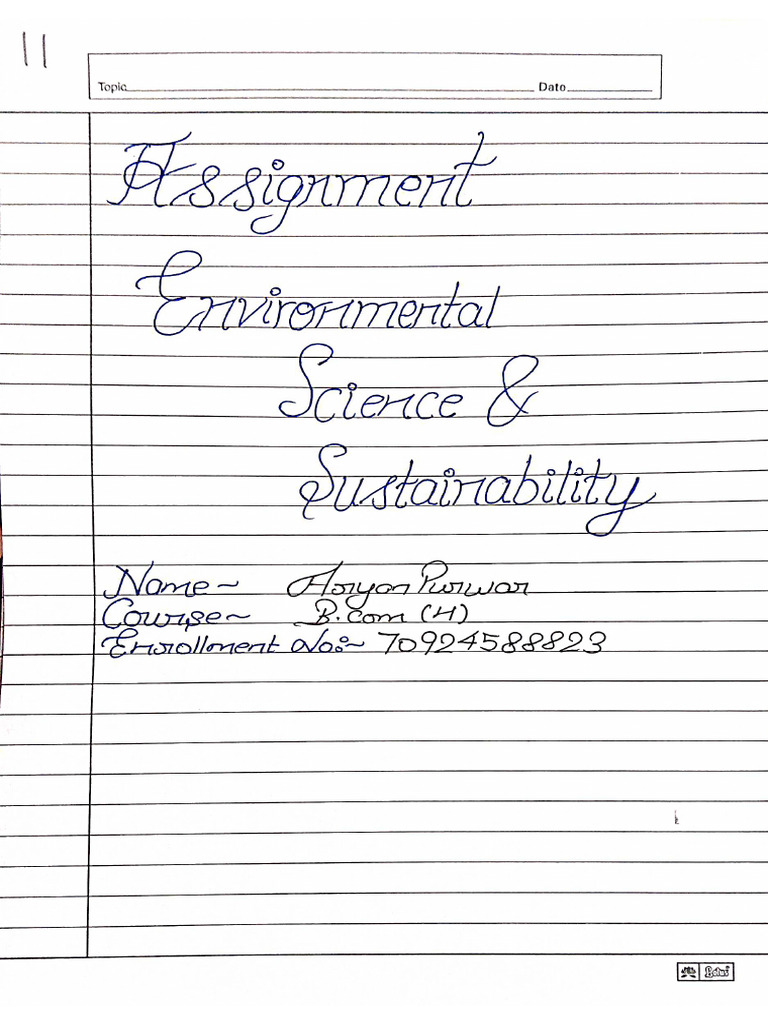 11
Topic Date
Assignment
Environmental
Science &
Sustainability
Name ~ Aryan Purwar
Course ~ B.Com (H)
Enrollment No:~ 70924588823